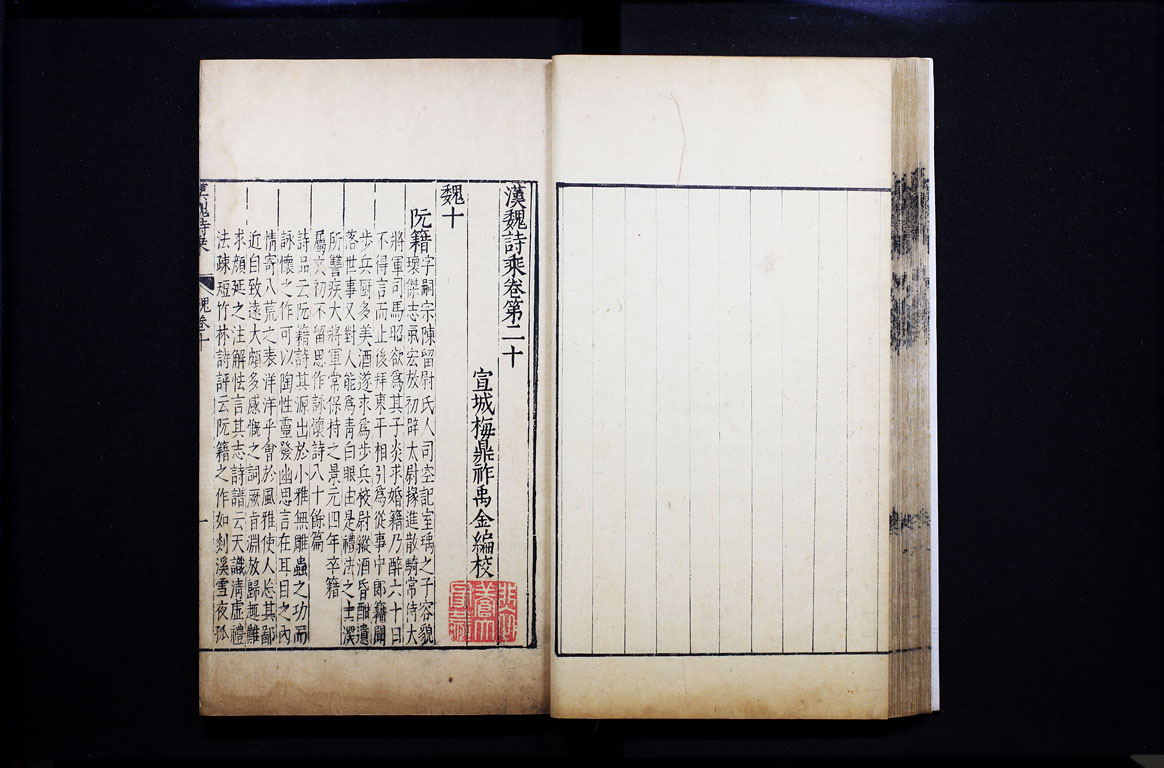 漢魏詩乘卷第二十
宣城梅鼎祚禹金編校
魏十
阮籍字嗣宗陳留尉氏人司空記室瑀之子容貌
瓌傑志氣宏放初辟太尉掾進散騎常侍大
將軍司馬昭欲爲其子炎求婚籍乃醉六十日
不得言而止後拜東平相引爲從事中郎籍聞
步兵厨多美酒遂求爲步兵校尉縱酒昏酣遺
落世事又對人能爲靑白眼由是禮法之士深
所讐疾大將軍常保持之景元四年卒籍
屬文初不留思作詠懷詩八十餘篇
詩品云阮籍詩其源出於小雅無雕蟲之功而
詠懷之作可以陶性靈發幽思言在耳目之內
情寄八荒之表洋洋乎會於風雅使人忘其鄙
近自致遠大頗多感慨之詞厥旨淵放歸趣難
求顏延之注解怯言其志詩譜云天識淸虛禮
法疎短竹林詩評云阮籍之作如剡溪雪夜孤
漢魏詩乘
魏卷十
一